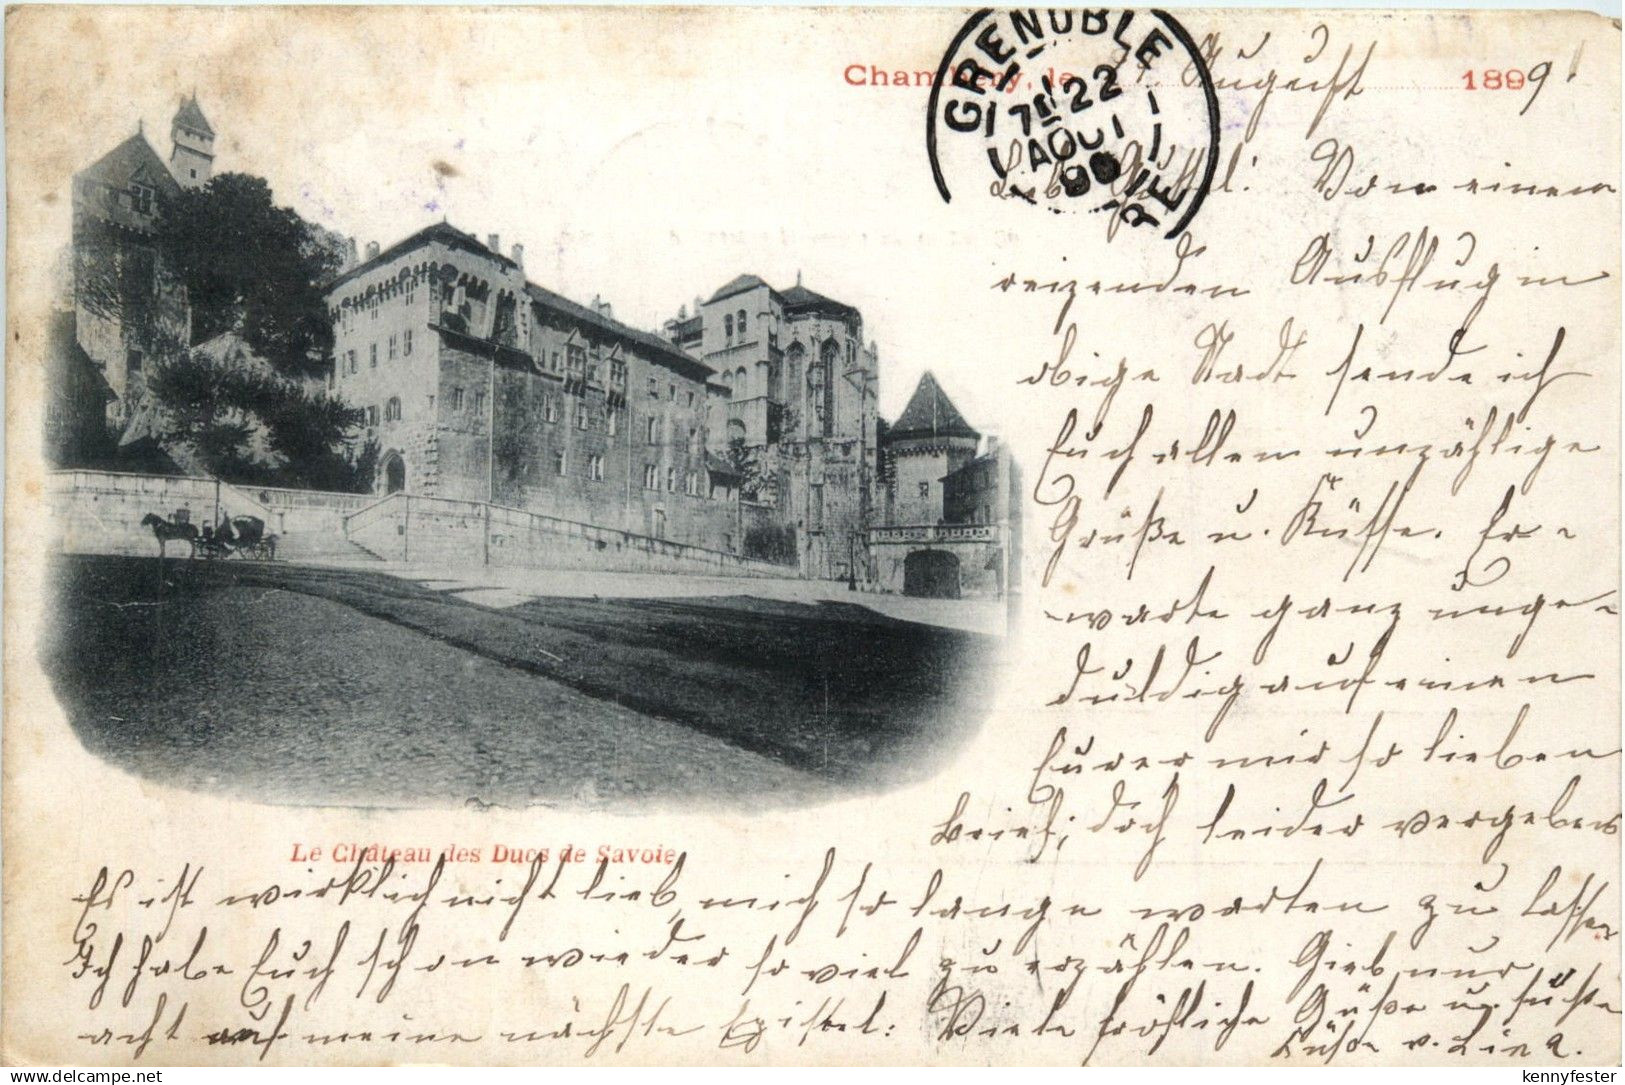 Chambéry, le August 1899.
GRENOBLE
7E 22
AOUT
99
ISERE
Liebe Von einem
reizenden Ausflug in
obige Stadt sende ich
Euch allem unzählige
Grüße u. Küsse. Er-
warte ganz unge-
duldig auf einen
Eurer mir so lieben
Brief; doch leider vergebens
Le Château des Ducs de Savoie
Es ist wirklich nicht lieb, mich so lange warten zu lassen
Ich habe Euch schon wieder so viel zu erzählen. Gieb nur
acht auf meine nächste Epistel: Viele fröhliche Grüße u. süße
Küsse v. Lina.
kennyfester